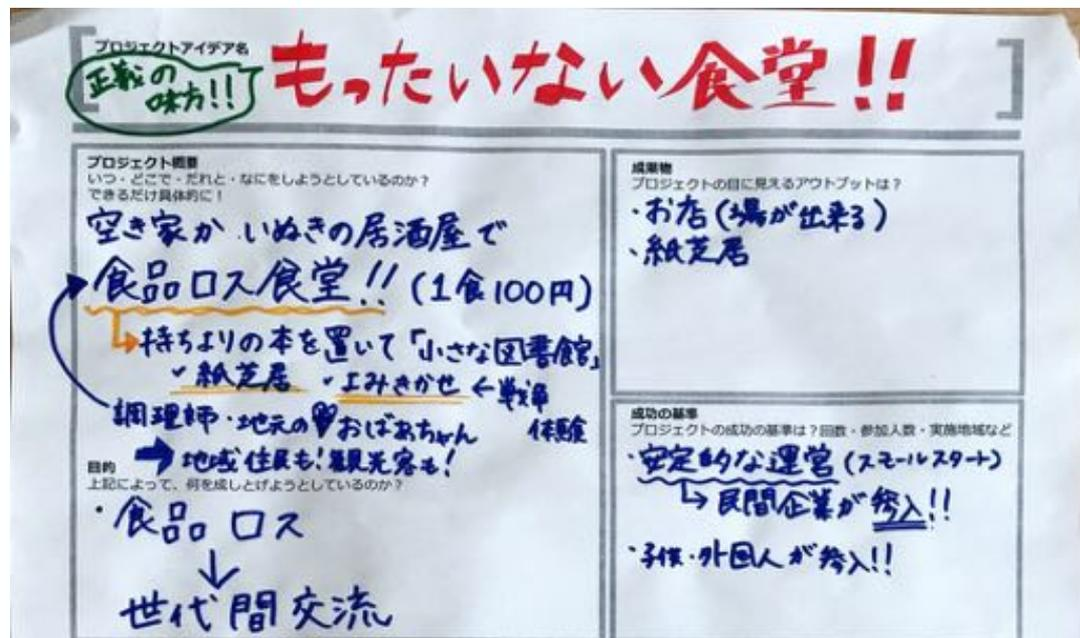 プロジェクトアイデア名
正義の
味方!!
もったいない食堂!!
プロジェクト概要
いつ・どこで・だれと・なにをしようとしているのか?
できるだけ具体的に!
空き家か いぬきの居酒屋で
食品ロス食堂!! (1食100円)
持ちよりの本を置いて「小さな図書館」
✓紙芝居 ✓よみきかせ ← 戦争
体験
調理師・地元の♥おばあちゃん
➡ 地域住民も!観光客も!
目的
上記によって、何を成しとげようとしているのか?
・食品ロス
↓
世代間交流
成果物
プロジェクトの目に見えるアウトプットは?
・お店(場が出来る)
・紙芝居
成功の基準
プロジェクトの成功の基準は?回数・参加人数・実施地域など
・安定的な運営(スモールスタート)
↳ 民間企業が参入!!
・子供・外国人が参入!!